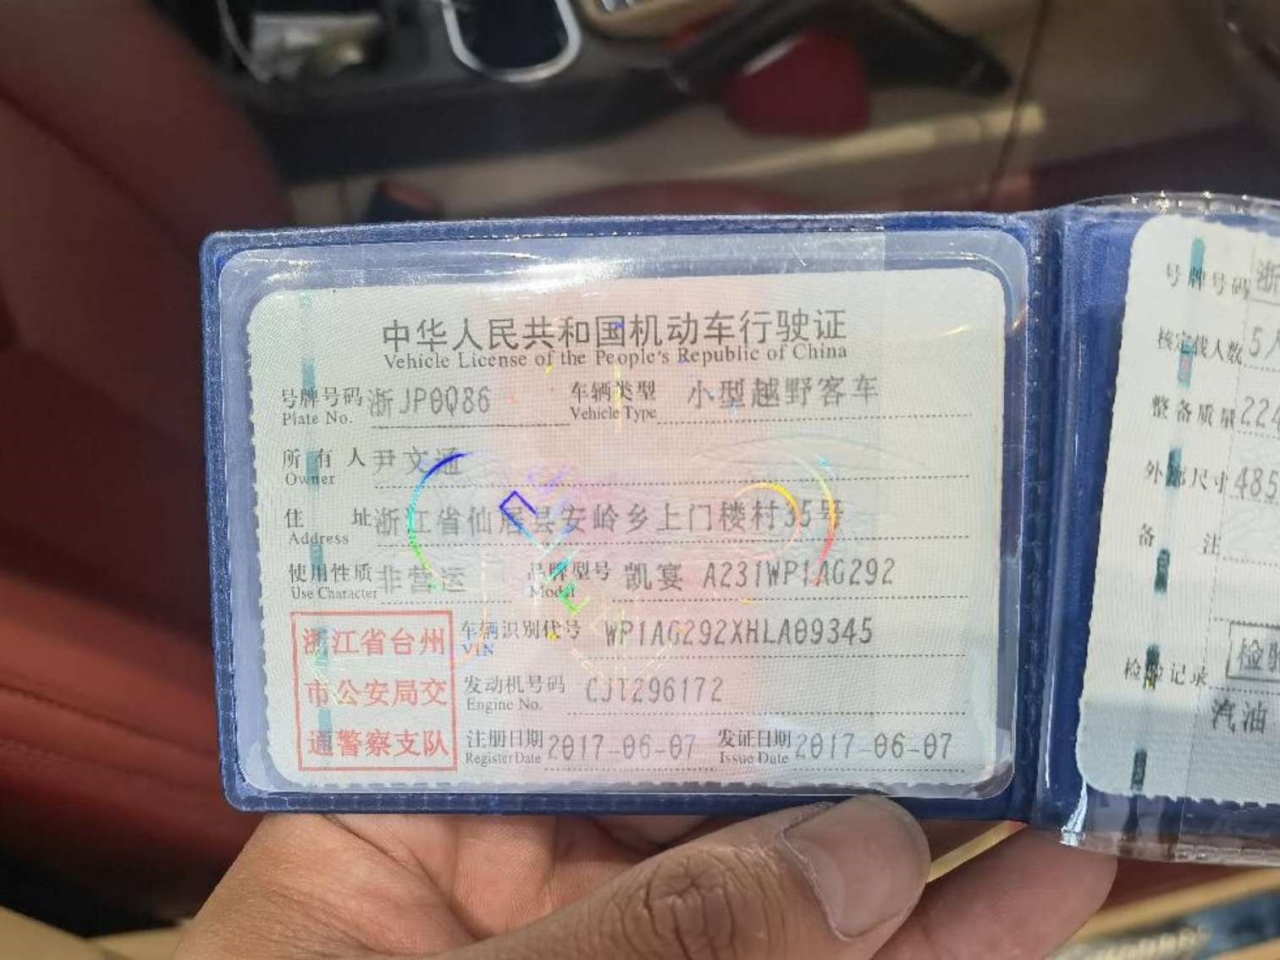 中华人民共和国机动车行驶证
Vehicle License of the People's Republic of China
号牌号码 浙JP0Q86 车辆类型 小型越野客车
Plate No. Vehicle Type
所有人 尹文通
Owner
住址 浙江省仙居县安岭乡上门楼村35号
Address
使用性质 非营运 品牌型号 凯宴 A231WP1AG292
Use Character Model
车辆识别代号 WP1AG292XHLA09345
VIN
发动机号码 CJT296172
Engine No.
注册日期 2017-06-07 发证日期 2017-06-07
Register Date Issue Date
浙江省台州
市公安局交
通警察支队
号牌号码 浙
核定载人数 5人
整备质量 224
外廓尺寸 485
备注
检验记录 检验
汽油